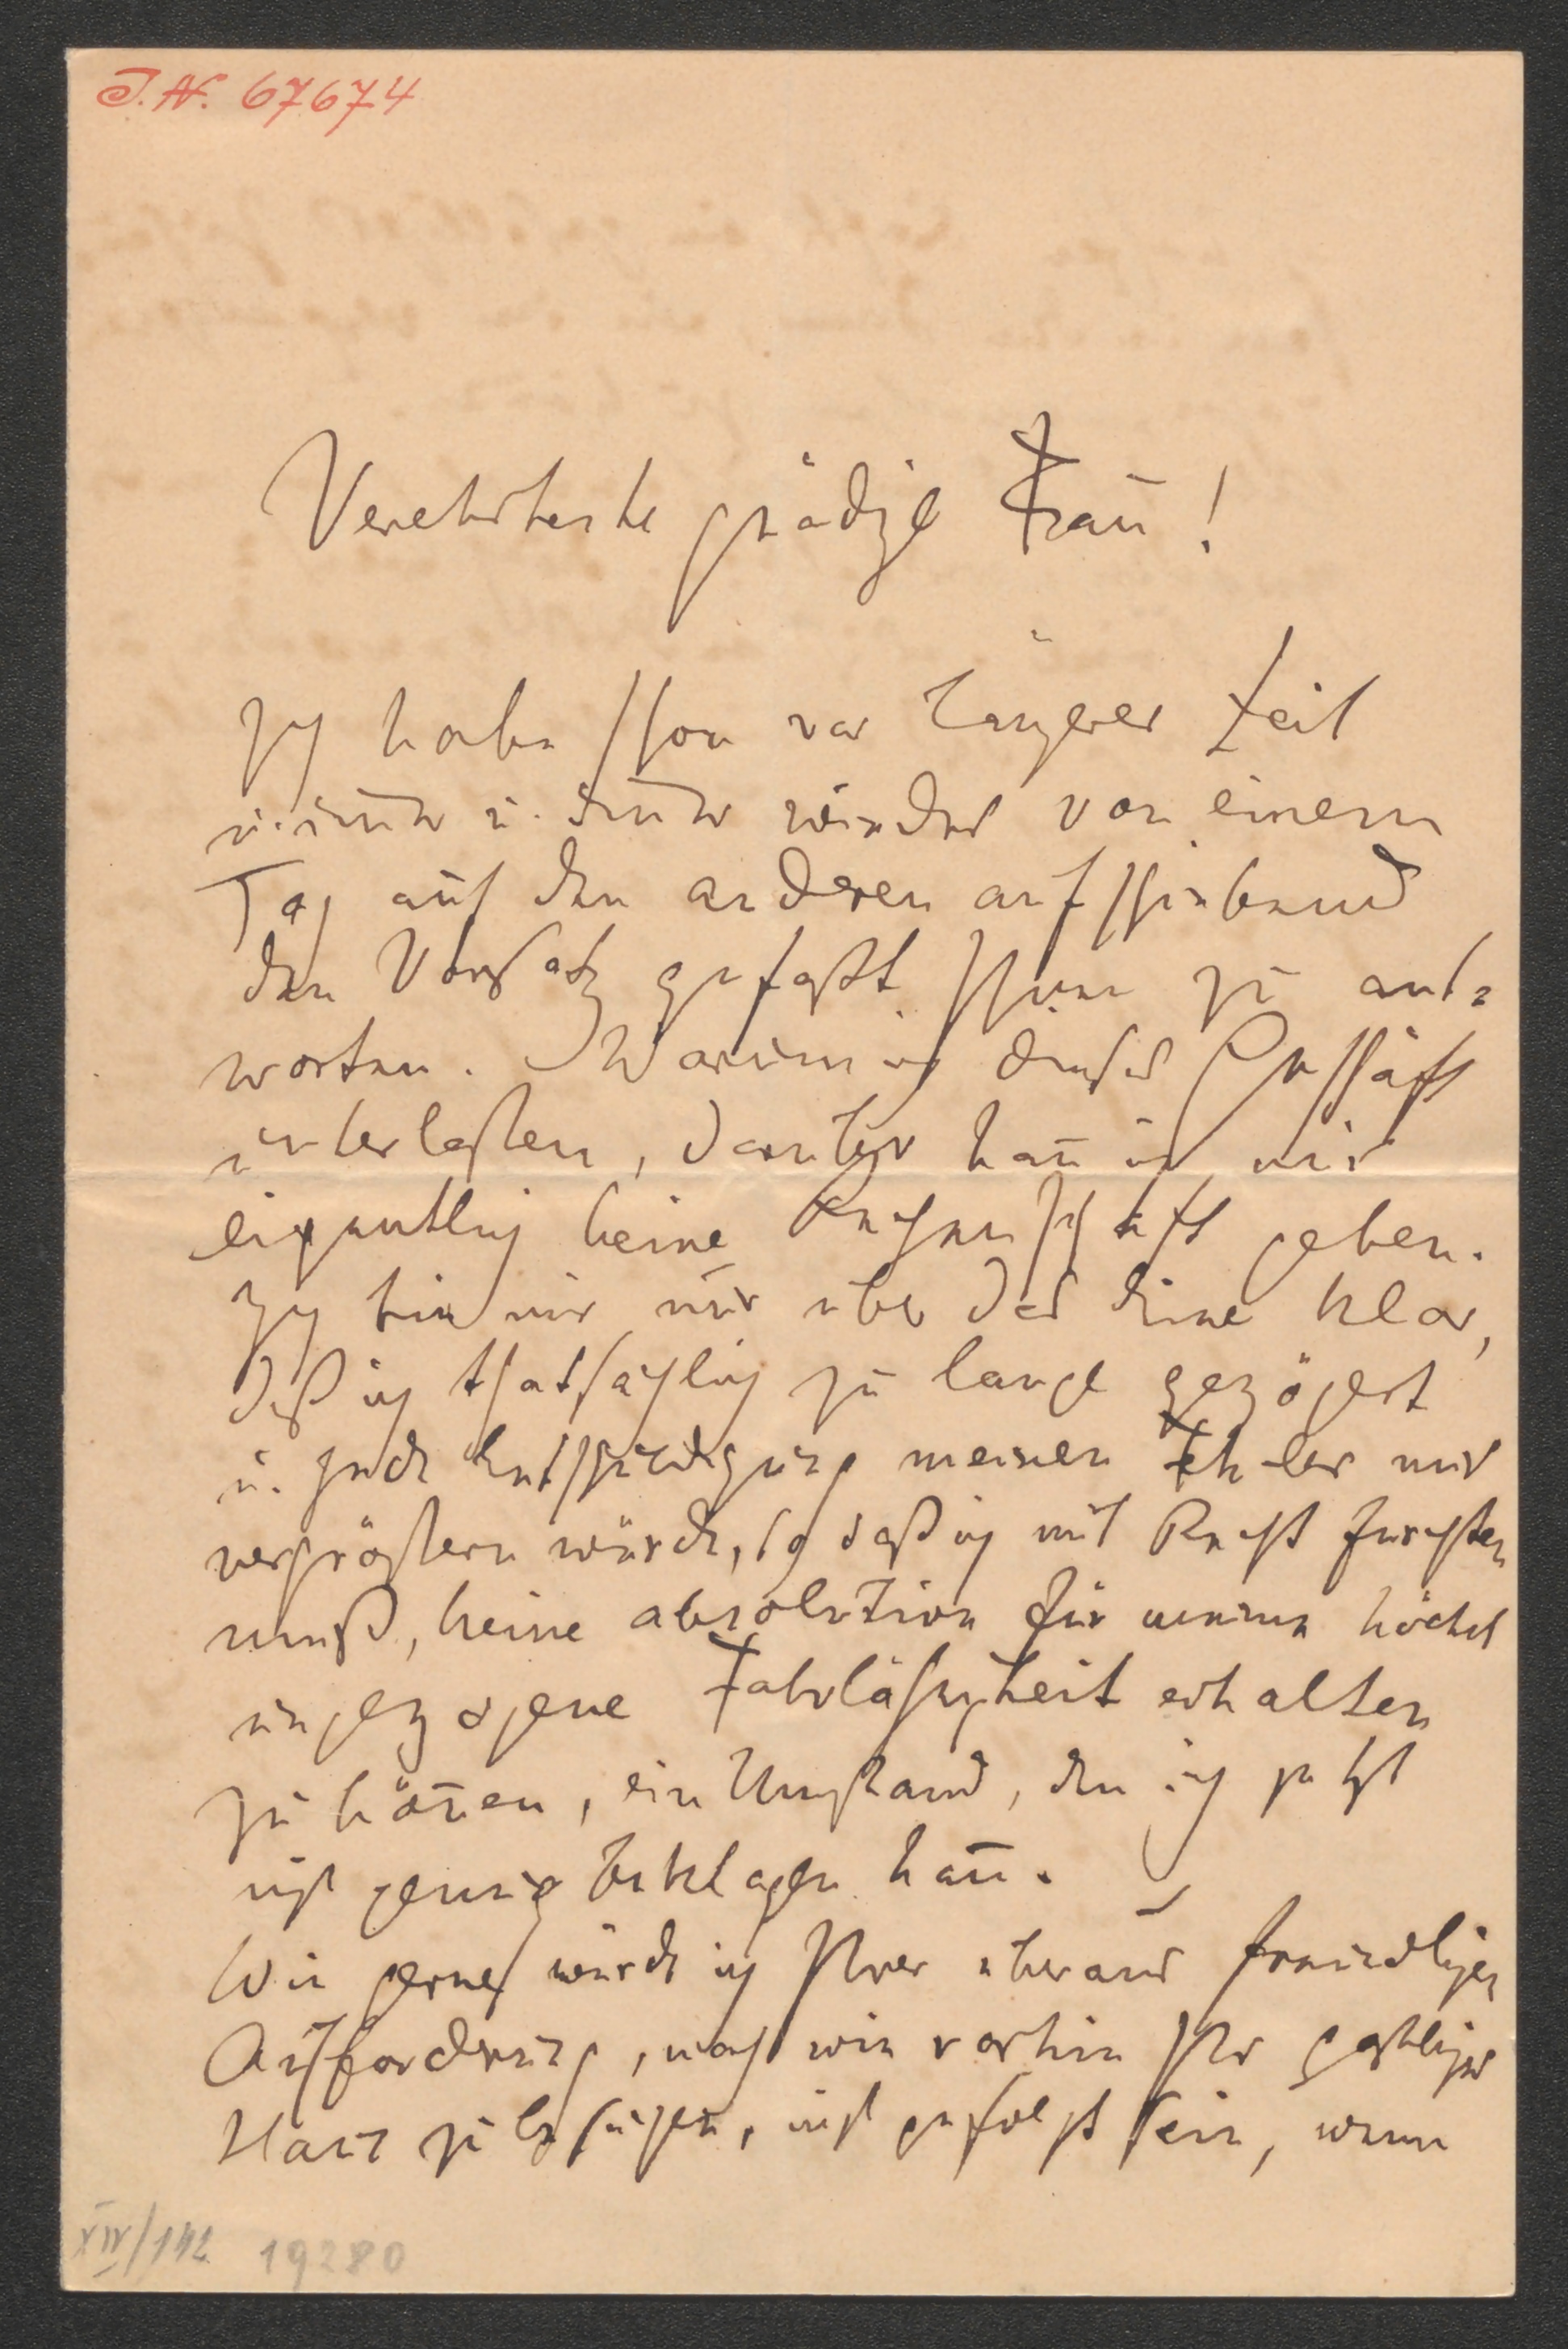 J. N. 67674
Verehrteste gnädige Frau!
Ich habe schon vor längerer Zeit
u. immer u. immer wieder von einem
Tag auf den anderen aufschiebend
den Vorsatz gefaßt Ihnen zu ant-
worten. Warum ich dieses Geschäft
unterlaßen, darüber kañ ich mir
eigentlich keine Rechenschaft geben.
Ich bin mir nur über das Eine klar,
daß ich thatsächlich zu lange gezögert
u. jede Entschuldigung meinen Fehler nur
vergrößern würde, so daß ich mit Recht fürchten
muß, keine absolution für meine höchst
ungezogene Fahrläßigkeit erhalten
zu köñen, ein Umstand, den ich jetzt
nicht genug beklagen kañ.
Wie gerne würde ich Ihrer überaus freundlichen
Aufforderung, nach wie vorhin Ihr gastliches
Haus zu besuchen, nicht gefolgt sein, wenn
XIV/142 19280